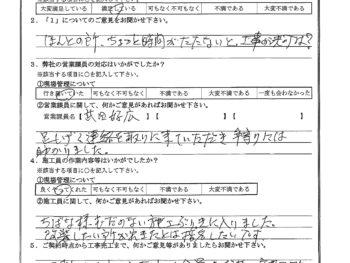 大変満足している 満足している 可もなく不可もなく 不満である 大変不満である
2.「1」についてのご意見をお聞かせ下さい。
ほんとの所、ちょっと時間がたたないと、工事の
3. 弊社の営業職員の対応はいかがでしたか？
※該当する項目に○を記入して下さい。
①現場管理について
行き届いていた 可もなく不可もなく 不満である 大変不満である 一度も会わなかった
②営業職員に関して、何かご意見があればお聞かせ下さい。
営業職員名【 武田好広 】【 】【 】
足しげく連絡を取りに来ていただき
助かりました。
4. 施工員の作業内容等はいかがでしたか？
※該当する項目に○を記入して下さい。
①現場管理について
良くやってくれた 可もなく不可もなく 不満である 大変不満である
②施工員に関して、何かご意見があればお聞かせ下さい。
むだのない施工ぶり気に入りました。
改装したい所が出来たら指名したいです
5. ご契約時点から工事完工まで、何かご意見等がありましたらお聞かせ下さい。